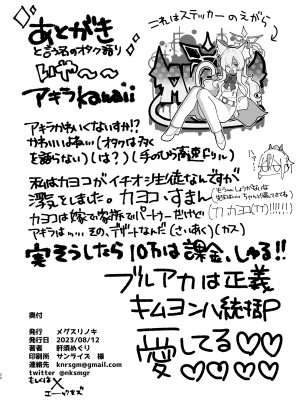 あとがき
と言う名のオタク語り
いや〜〜
アキラkawaii
これはステッカーのえがら
アキラかわいくないすか!?
かわいいよねぃ…(オタクは多くを語らない)(は?)(手のひら高速ドリル)
私はカヨコがイチオシ生徒なんですが
浮気をしました。カヨコ、すまん
カヨコは嫁で家族でパートナーだけど
アキラは…、その、デザートなんだ(さいあく)(カス)
(カ カヨコ(!?)!!!!!)
実そうしたら10万は課金、しゅる!!
ブルアカは正義
キムヨンハ統括P
愛してる♡♡♡♡♡
奥付
発行 メグスリノキ
発行日 2023/08/12
著者 肝須めぐり
印刷所 サンライズ 様
連絡先 knrsgm@gmail.com
twitter @nksmgr
もしくはX